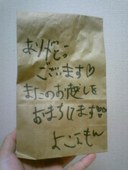 ありがとう
ございます♡
またのお越しを
おまちしてます♡
よこえもん